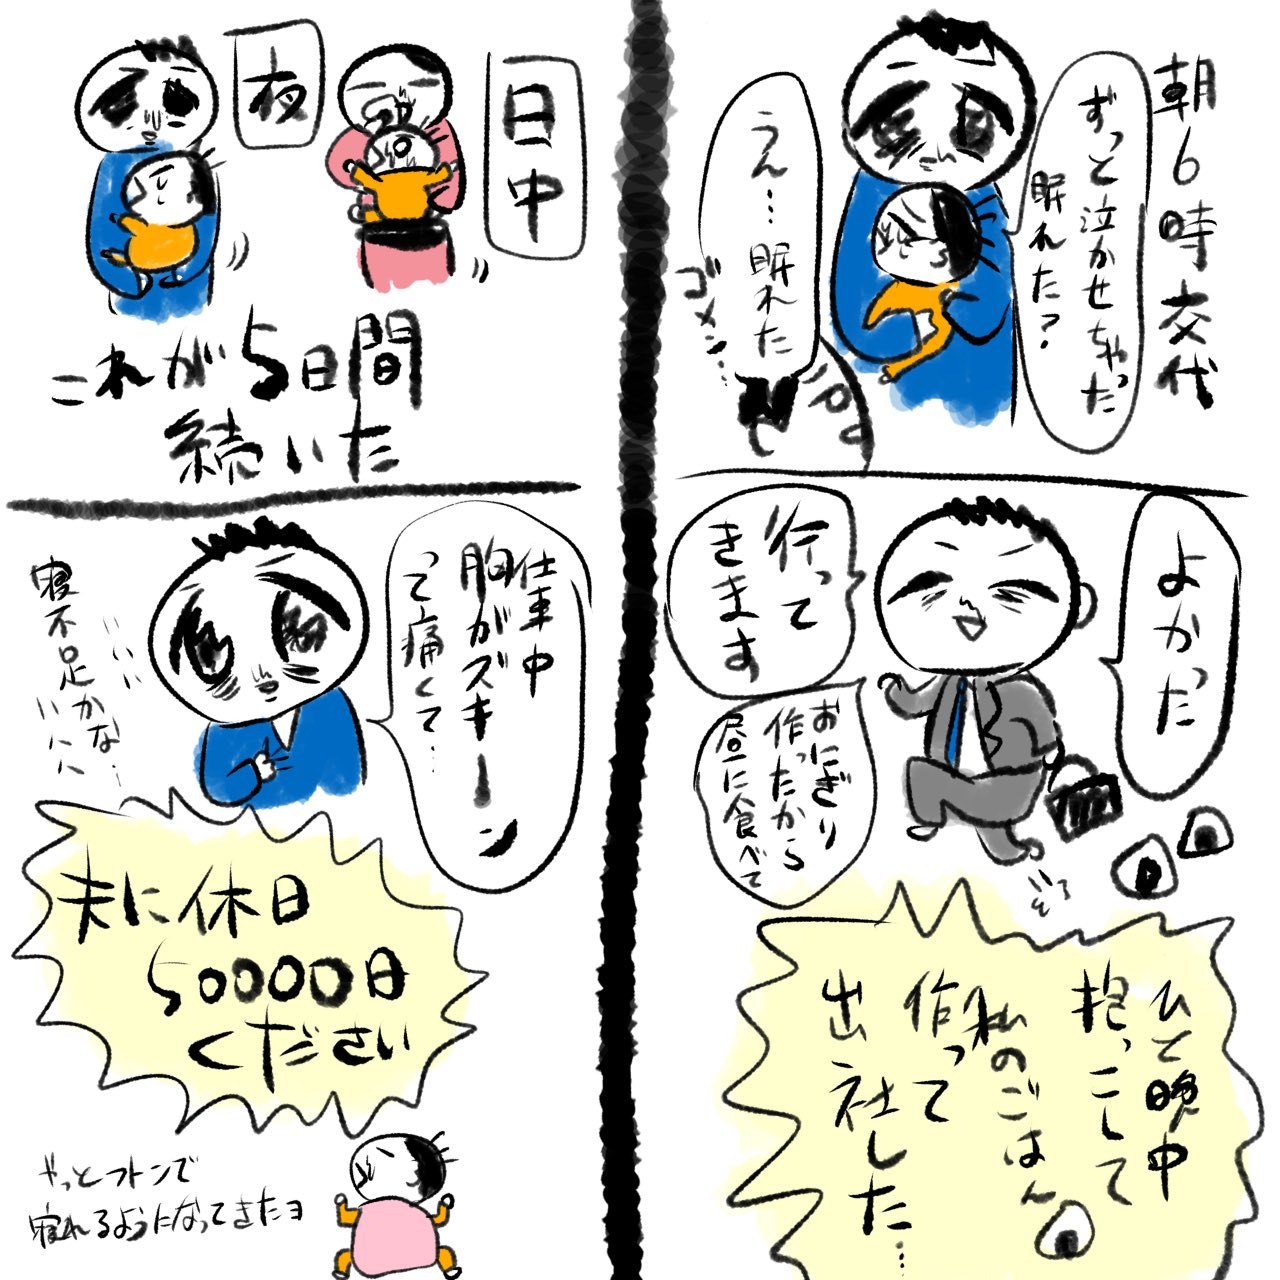 朝6時交代
ずっと泣かせちゃった
眠れた?
うん…眠れた
ゴメン…
よかった
行って
きます
おにぎり
作ったから
昼に食べて
ひと晩中
抱っこして
私のごはん
作って
出社した…
日中
夜
これが5日間
続いた
仕事中
胸がズキーン
って痛くて…
寝不足かな…
ハハ
夫に休日
50000日
ください
やっとフトンで
寝れるようになってきたヨ